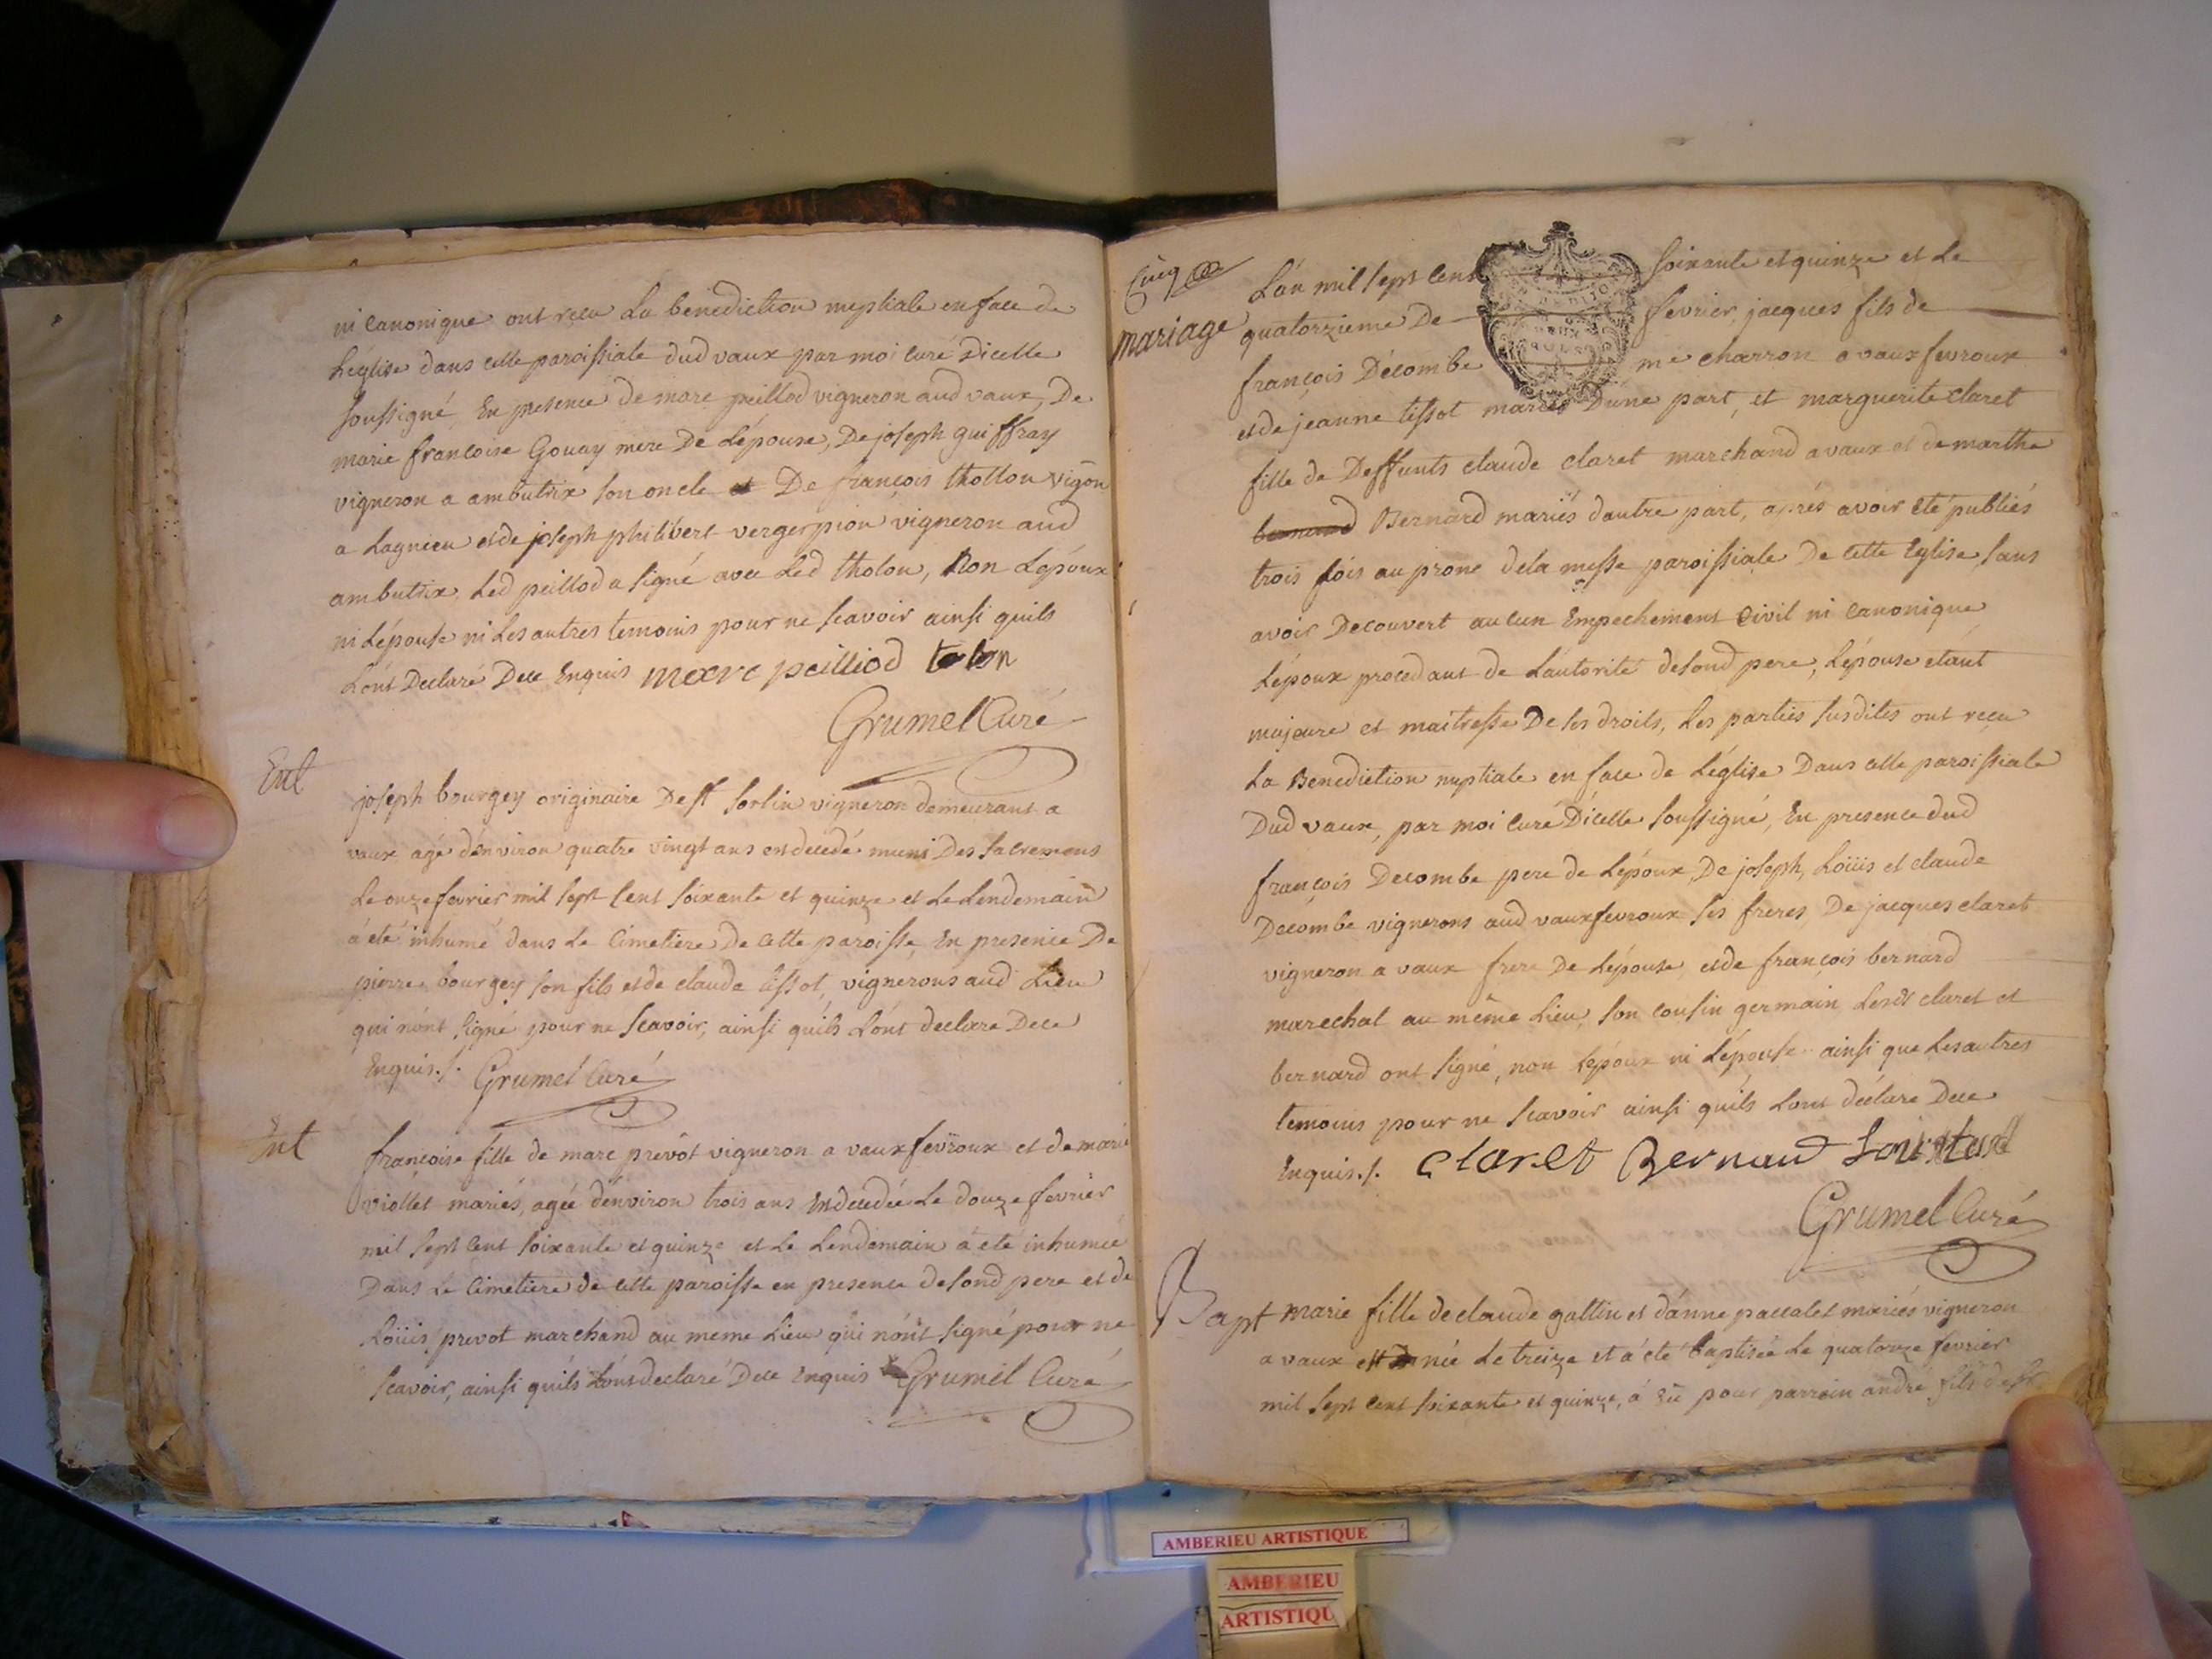 ni canonique ont reçu La benediction nuptiale en face de
L'église dans celle paroissiale dud vaux par moi curé dicelle
soussigné, En presence de marc peillod vigneron aud vaux, De
marie francoise Gouay mere De Lépouse, De joseph guiffray
vigneron a ambutrix son oncle De françois thollon vigñon
a Lagnieu et de joseph philibert vergerpion vigneron aud
ambutrix. Led peillod a signé avec Led tholon, Non Lépoux
ni Lépouse ni Les autres temoins pour ne scavoir ainsi quils
Lónt Declaré Dece Enquis marc peilliod tolon
Grumel Curé
Ent
joseph bourgey originaire De st sorlin vigneron demeurant a
vaux agé dénviron quatre vingt ans est decedé muni Des sacremens
Le onze fevrier mil sept cent soixante et quinze et Le Lendemain
á été inhumé dans Le Cimetiere De cette paroisse, En presence De
pierre bourgey son fils et de claude tissot, vignerons aud Lieu
qui nónt signé pour ne scavoir, ainsi quils Lónt declare Dece
Enquis./. Grumel Curé
Ent
françoise fille de marc prevôt vigneron a vauxfevroux et de marie
viollet mariés, agée dénviron trois ans est decedée Le douze fevrier
mil sept cent soixante et quinze et Le Lendemain á eté inhumée
Dans Le Cimetiere de cette paroisse en presence de sond pere et de
Loüis prevot marchand au meme Lieu qui nónt signé pour ne
scavoir, ainsi quils Lónt declaré Dece Enquis Grumel Curé
Cinq
mariage
Lán mil sept cent soixante et quinze et Le
quatorzieme De fevrier, jacques fils de
françois Décombe me charron a vauxfevroux
et de jeanne tissot mariés D'une part, et marguerite claret
fille de Deffunts claude claret marchand a vaux et de marthe
bernard Bernard mariés dautre part, aprés avoir eté publiés
trois fois au prone dela messe paroissiale De cette Eglise sans
avoir Decouvert aucun Empechement Civil ni canonique
Lépoux procedant de Lautorité desond pere, Lépouse etant
majeure et maitresse De ses droits, Les parties susdites ont reçu
La Benediction nuptiale en face de Léglise Dans celle paroissiale
Dud vaux, par moi curé Dicelle soussigné, En presence dud
françois Decombe pere de Lépoux, De joseph, Loüis et claude
Decombe vignerons aud vauxfevroux ses freres, De jacques claret
vigneron a vaux frere De Lépouse, et de françois bernard
marechal au même Lieu, son cousin germain, Lesd claret et
bernard ont signé, non Lépoux ni Lépouse ainsi que Les autres
temoins pour ne scavoir ainsi quils Lont déclare Dece
Enquis./. Claret Bernard
Grumel Curé
Bapt
marie fille de claude gattin et dánne paccalet mariés vigneron
a vaux est née Le treize et á été baptisée Le quatorze fevrier
mil sept cent soixante et quinze, á Eü pour parrain andré fils de
AMBERIEU ARTISTIQUE
AMBERIEU
ARTISTIQU